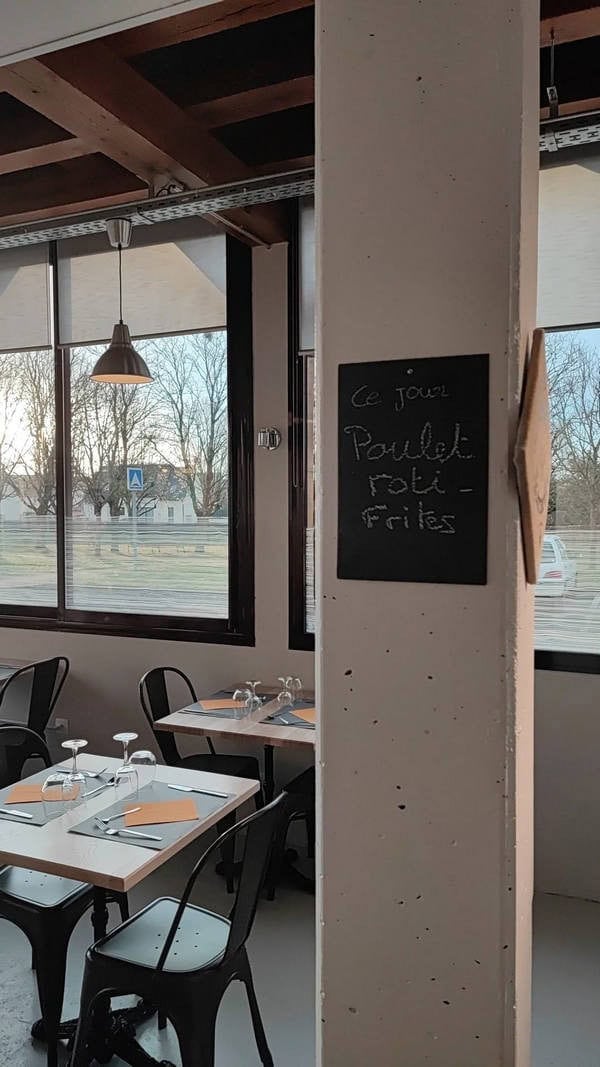 Ce jour
Poulet
roti -
Frites